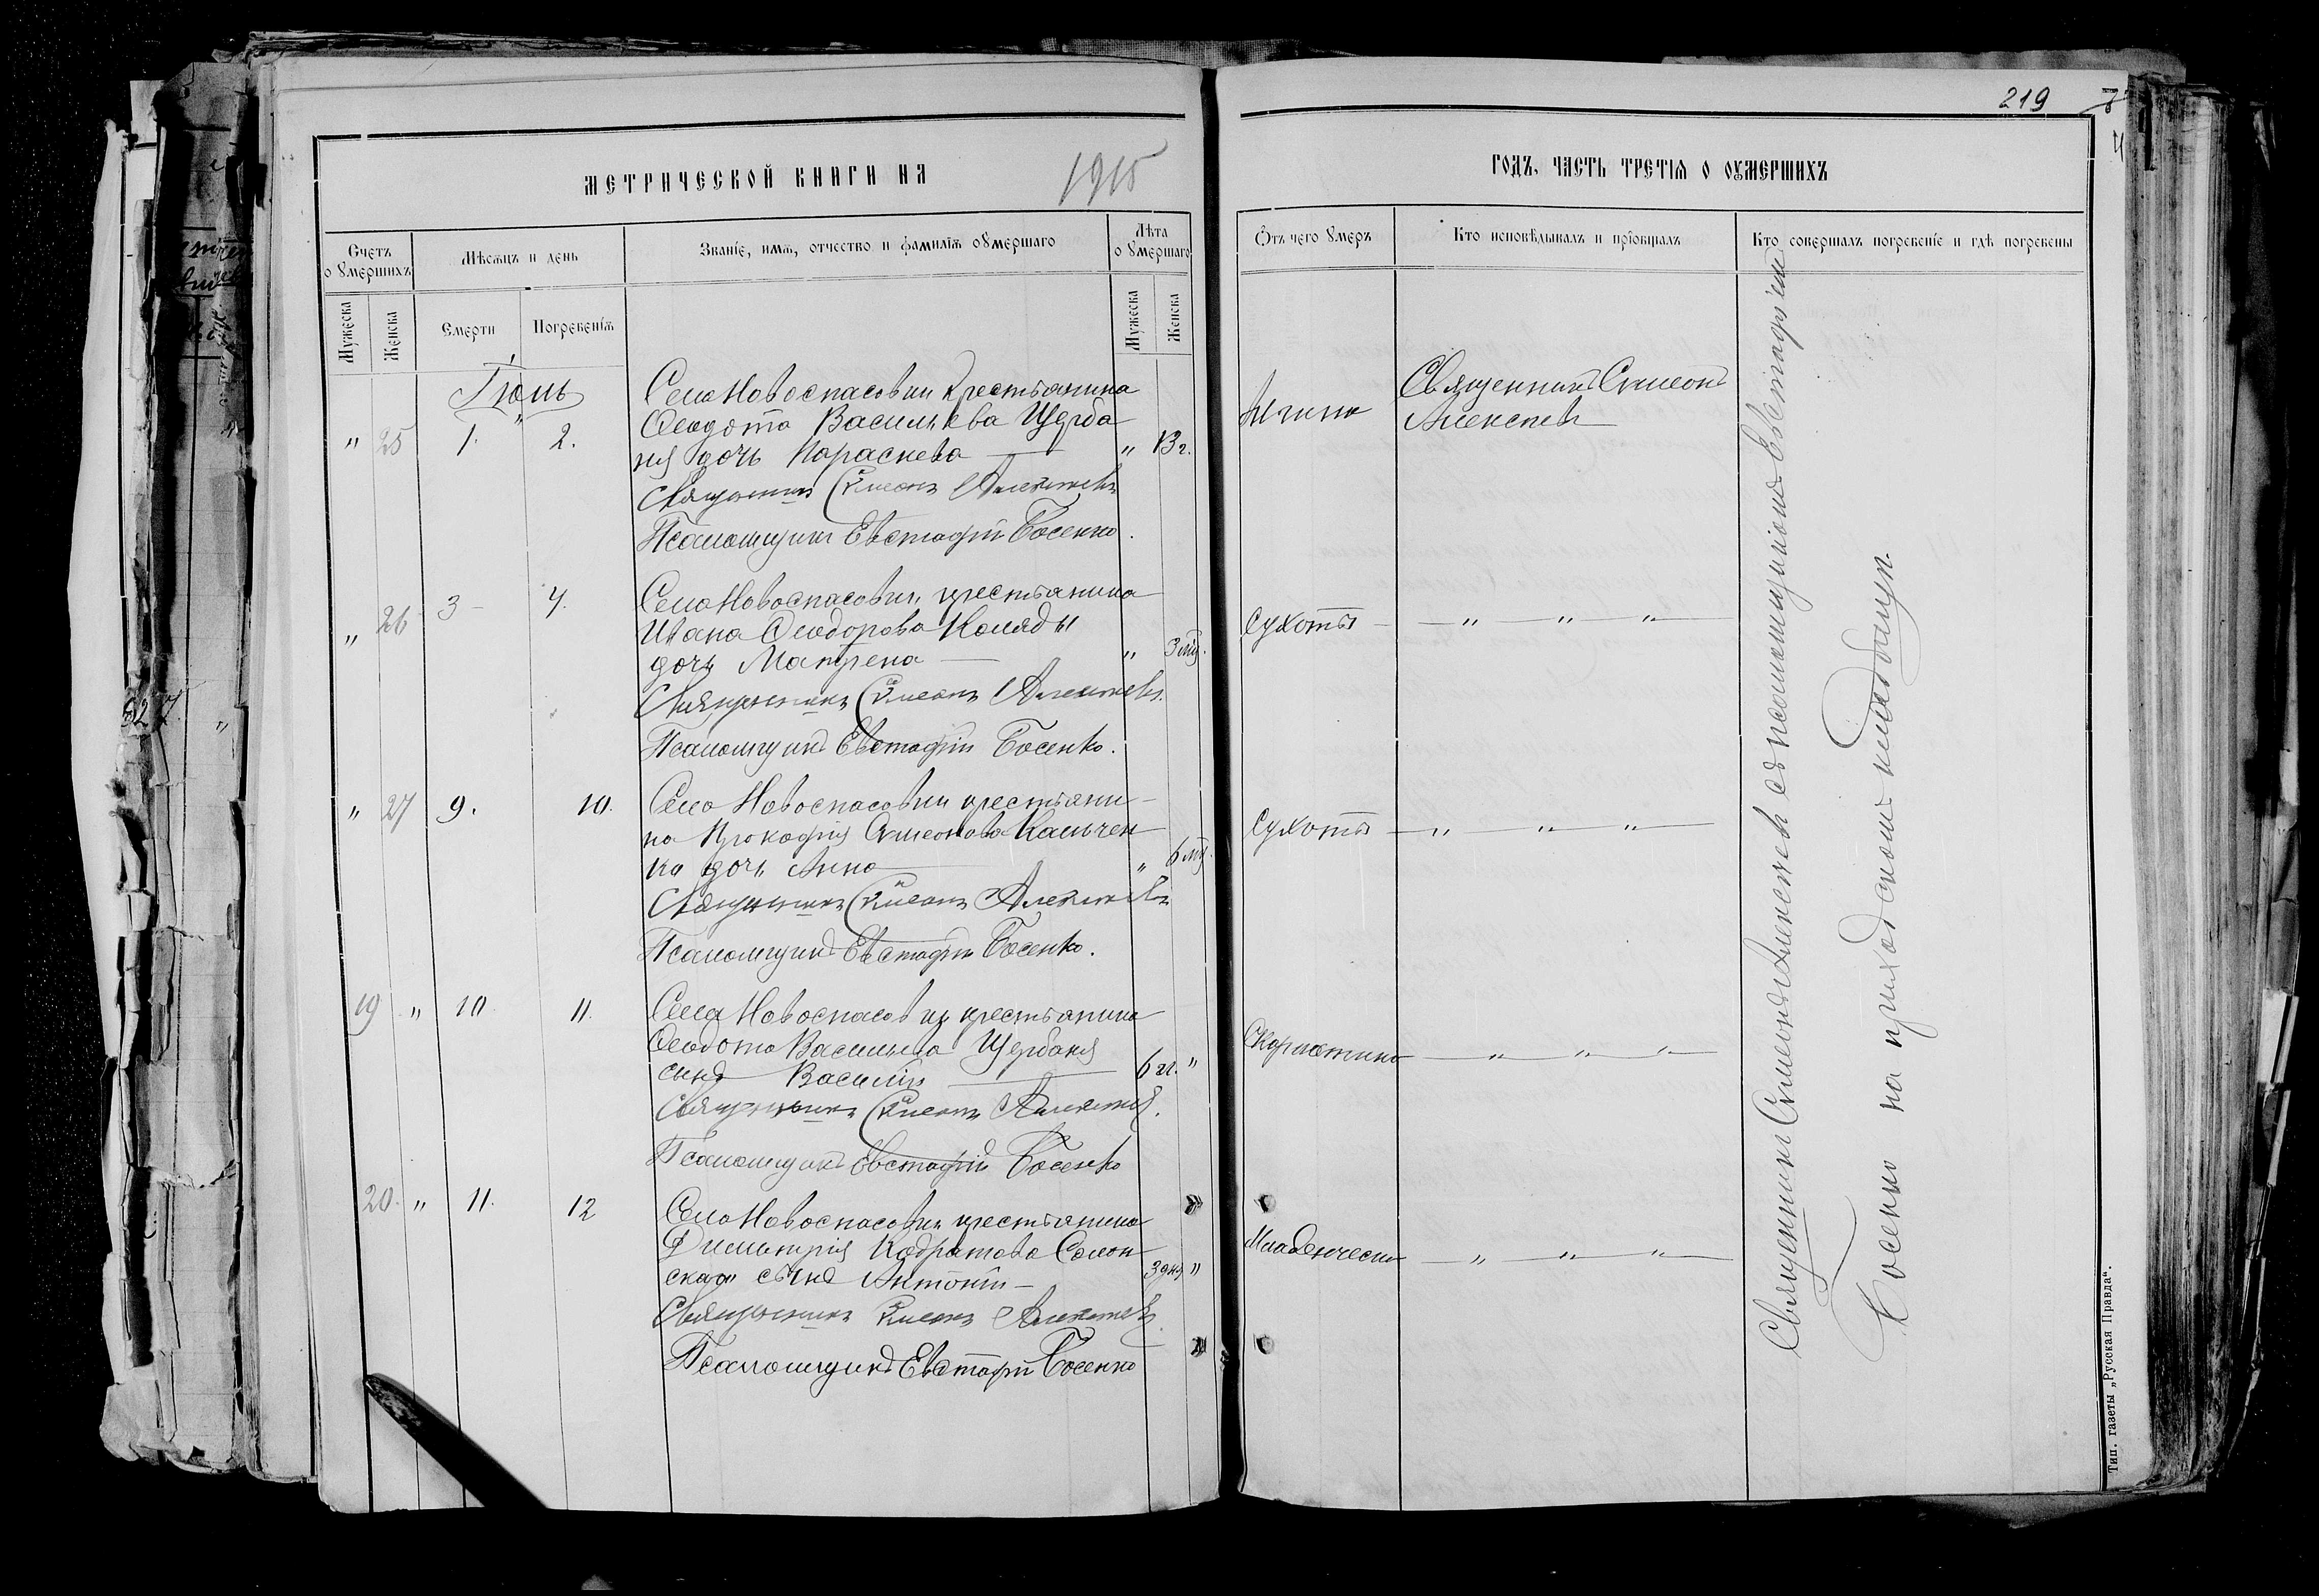 219
МЕТРИЧЕСКОЙ КНИГИ НА 1915
ГОДЪ, ЧАСТЬ ТРЕТІѦ О ОУМЕРШИХЪ
Счетъ оумершихъ
Мѣсѧцъ и день
Званіе, имѧ, отчество и фамиліѧ оумершаго
Лѣта оумершаго
Отъ чего умеръ
Кто исповѣдывалъ и пріобщалъ
Кто совершалъ погребеніе и гдѣ погребены
Мужеска
Женска
Смерти
Погребеніѧ
Мужеска
Женска
Іюнь
" 25 1. 2.
Села Новоспасовки крестьянина
Ѳеодота Васильева Щерба
ня дочь Параскева
" 13 г.
Священникъ Симеонъ
Алексѣевъ
Священникъ Симеонъ Алексѣевъ
Псаломщикъ Евстафій Босенко.
" 26 3 4.
Села Новоспасовки крестьянина
Ивана Ѳеодорова Коляды
дочь Матрена
" 3 мц.
Сухоты — " — " — " —
Священникъ Симеонъ Алексѣевъ.
Псаломщикъ Евстафій Босенко.
" 27 9. 10.
Села Новоспасовки крестьяни-
на Прокофія Симеонова Кальчен
ка дочь Анна
" 6 мц.
Сухоты — " " " —
Священникъ Симеонъ Алексѣевъ
Псаломщикъ Евстафій Босенко.
19 " 10 11.
Села Новоспасовки крестьянина
Ѳеодота Васильева Щербаня
сынъ Василій
6 л. "
Скарлатина — " — " — " —
Священникъ Симеонъ Алексѣевъ.
Псаломщикъ Евстафій Босенко
20. " 11. 12
Села Новоспасовки крестьянина
Димитрія Кодратова Солон
скаго сынъ Антоній
3 дня "
Младенческая — " — " — " —
Священникъ Симеонъ Алексѣевъ
Псаломщикъ Евстафій Босенко
Священникъ Симеонъ Алексѣевъ съ псаломщикомъ Евстафіемъ
Босенко на приходскомъ кладбищѣ.
Тип. газеты „Русская Правда".